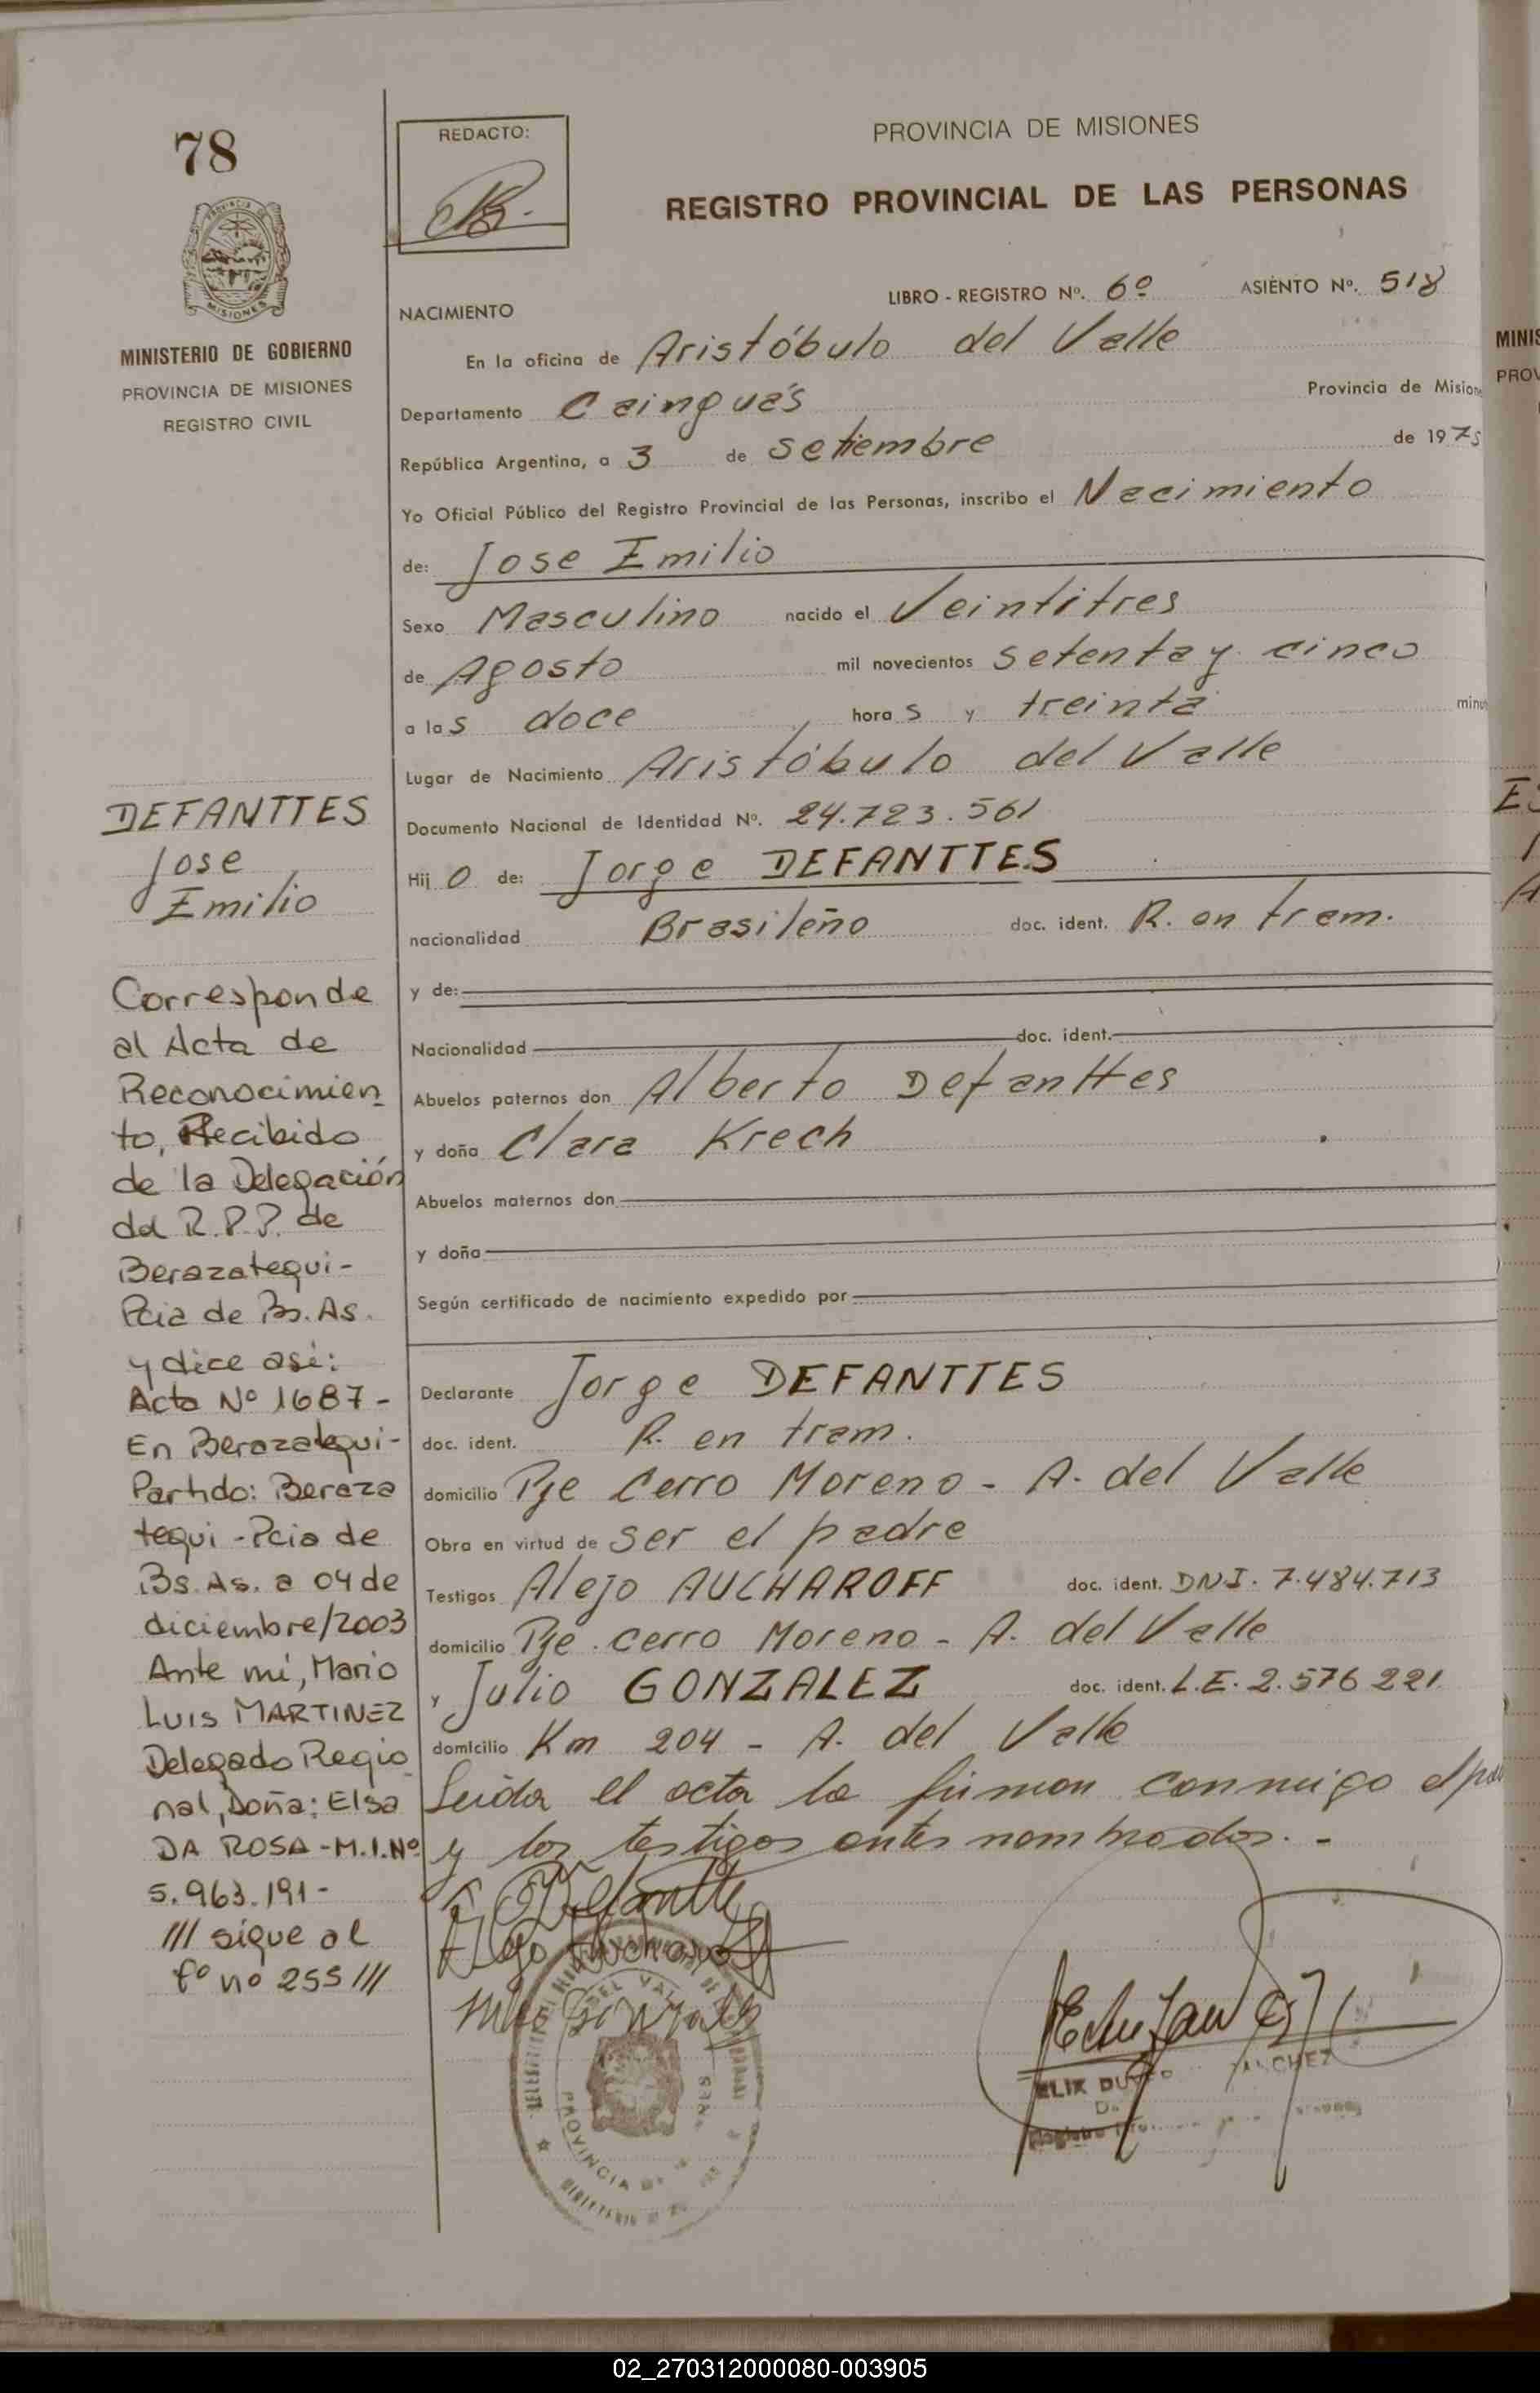 78
REDACTO:
PROVINCIA DE MISIONES
REGISTRO PROVINCIAL DE LAS PERSONAS
MISIONES
MINISTERIO DE GOBIERNO
PROVINCIA DE MISIONES
REGISTRO CIVIL
LIBRO - REGISTRO Nº. 6º ASIENTO Nº. 518
NACIMIENTO
En la oficina de Aristóbulo del Valle
Departamento Cainguás Provincia de Misione
República Argentina, a 3 de setiembre de 1975
Yo Oficial Público del Registro Provincial de las Personas, inscribo el Nacimiento
de: Jose Emilio
Sexo Masculino nacido el Veintitres
de Agosto mil novecientos setenta y cinco
a las doce horas y treinta minu
Lugar de Nacimiento Aristóbulo del Valle
Documento Nacional de Identidad Nº. 24.723.561
Hijo de: Jorge DEFANTTES
nacionalidad Brasileño doc. ident. R. en tram.
y de:
Nacionalidad doc. ident.
Abuelos paternos don Alberto Defanttes
y doña Clara Krech
Abuelos maternos don
y doña
Según certificado de nacimiento expedido por
Declarante Jorge DEFANTTES
doc. ident. R. en tram.
domicilio Pje Cerro Moreno - A. del Valle
Obra en virtud de ser el padre
Testigos Alejo AUCHAROFF doc. ident. DNI. 7.484.713
domicilio Pje. Cerro Moreno - A. del Valle
y Julio GONZALEZ doc. ident. L.E. 2.576 221
domicilio Km 204 - A. del Valle
Leida el acta la firman conmigo el
y los testigos antes nombrados. -
DEFANTTES
Jose
Emilio
Corresponde
al Acta de
Reconocimien
to, Recibido
de la Delegación
del R.P.P. de
Berazategui -
Pcia de Bs. As.
y dice asi:
Acta Nº 1687 -
En Berazategui -
Partido: Beraza
tegui - Pcia de
Bs. As. a 04 de
diciembre/2003
Ante mi, Mario
LUIS MARTINEZ
Delegado Regio
nal, Doña: Elsa
DA ROSA - M.I.Nº
5.963.191 -
/// sigue al
fº nº 255 ///
PROVINCIA
MINIS
PROV
02_270312000080-003905